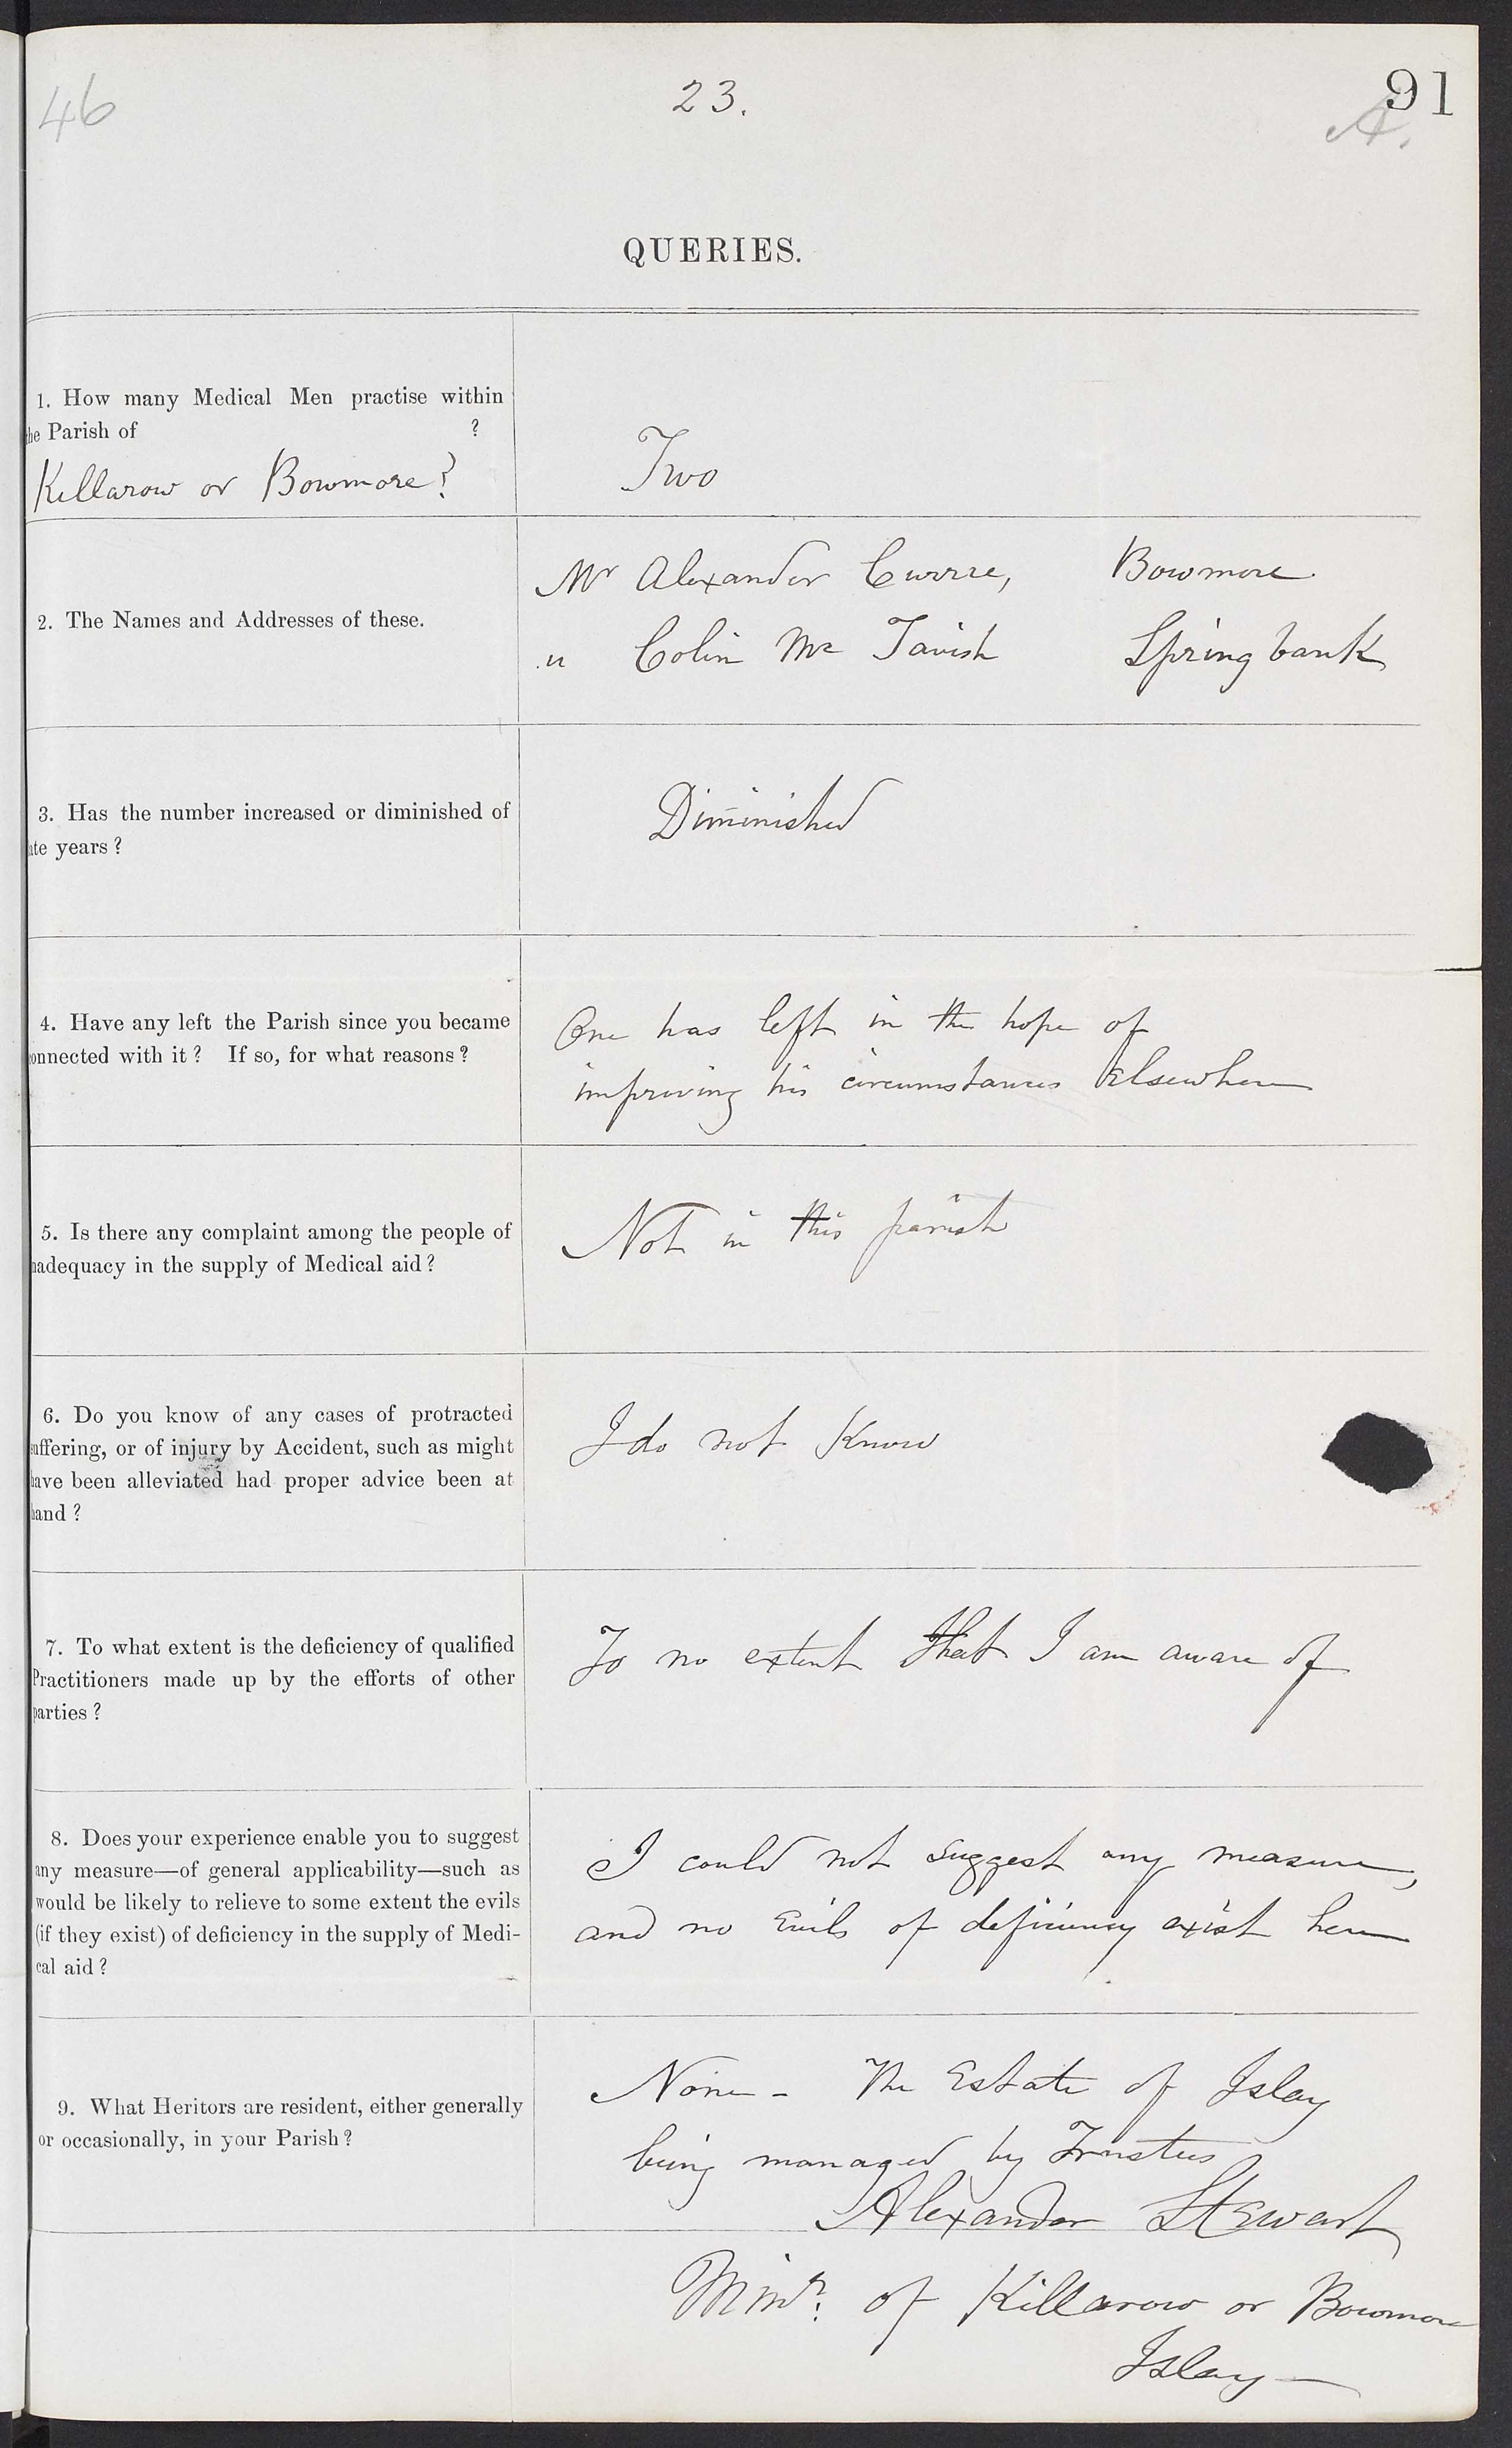 46
23.
91
A.
QUERIES.
1. How many Medical Men practise within
the Parish of ?
Killarow or Bowmore?
Two
2. The Names and Addresses of these.
Mr Alexander Currie, Bowmore
" Colin Mc Tavish Springbank
3. Has the number increased or diminished of
ate years ?
Diminished
4. Have any left the Parish since you became
onnected with it ? If so, for what reasons ?
One has left in the hope of
improving his circumstances Elsewhere
5. Is there any complaint among the people of
nadequacy in the supply of Medical aid ?
Not in this parish
6. Do you know of any cases of protracted
uffering, or of injury by Accident, such as might
have been alleviated had proper advice been at
hand ?
I do not Know
7. To what extent is the deficiency of qualified
Practitioners made up by the efforts of other
parties ?
To no extent that I am aware of
8. Does your experience enable you to suggest
any measure—of general applicability—such as
would be likely to relieve to some extent the evils
(if they exist) of deficiency in the supply of Medi-
cal aid ?
I could not suggest any measure,
and no Evils of deficiency exist here
9. What Heritors are resident, either generally
or occasionally, in your Parish ?
None - The Estate of Islay
being managed by Trustees
Alexander Stewart
Minr. of Killarow or Bowmore
Islay